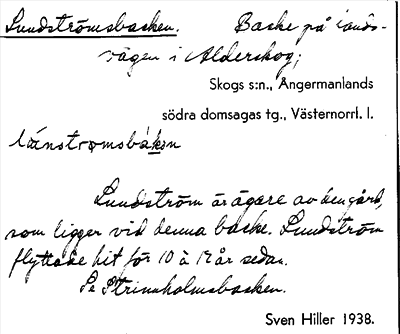 Lundströmsbacken. Backe på lands-
vägen i Alderskog;
Skogs s:n., Ångermanlands
södra domsagas tg., Västernorrl. l.
Lundström är ägare av den gård,
som ligger vid denna backe. Lundström
flyttade hit för 10 à 12 år sedan.
Se Strinnholmsbacken.
Sven Hiller 1938.